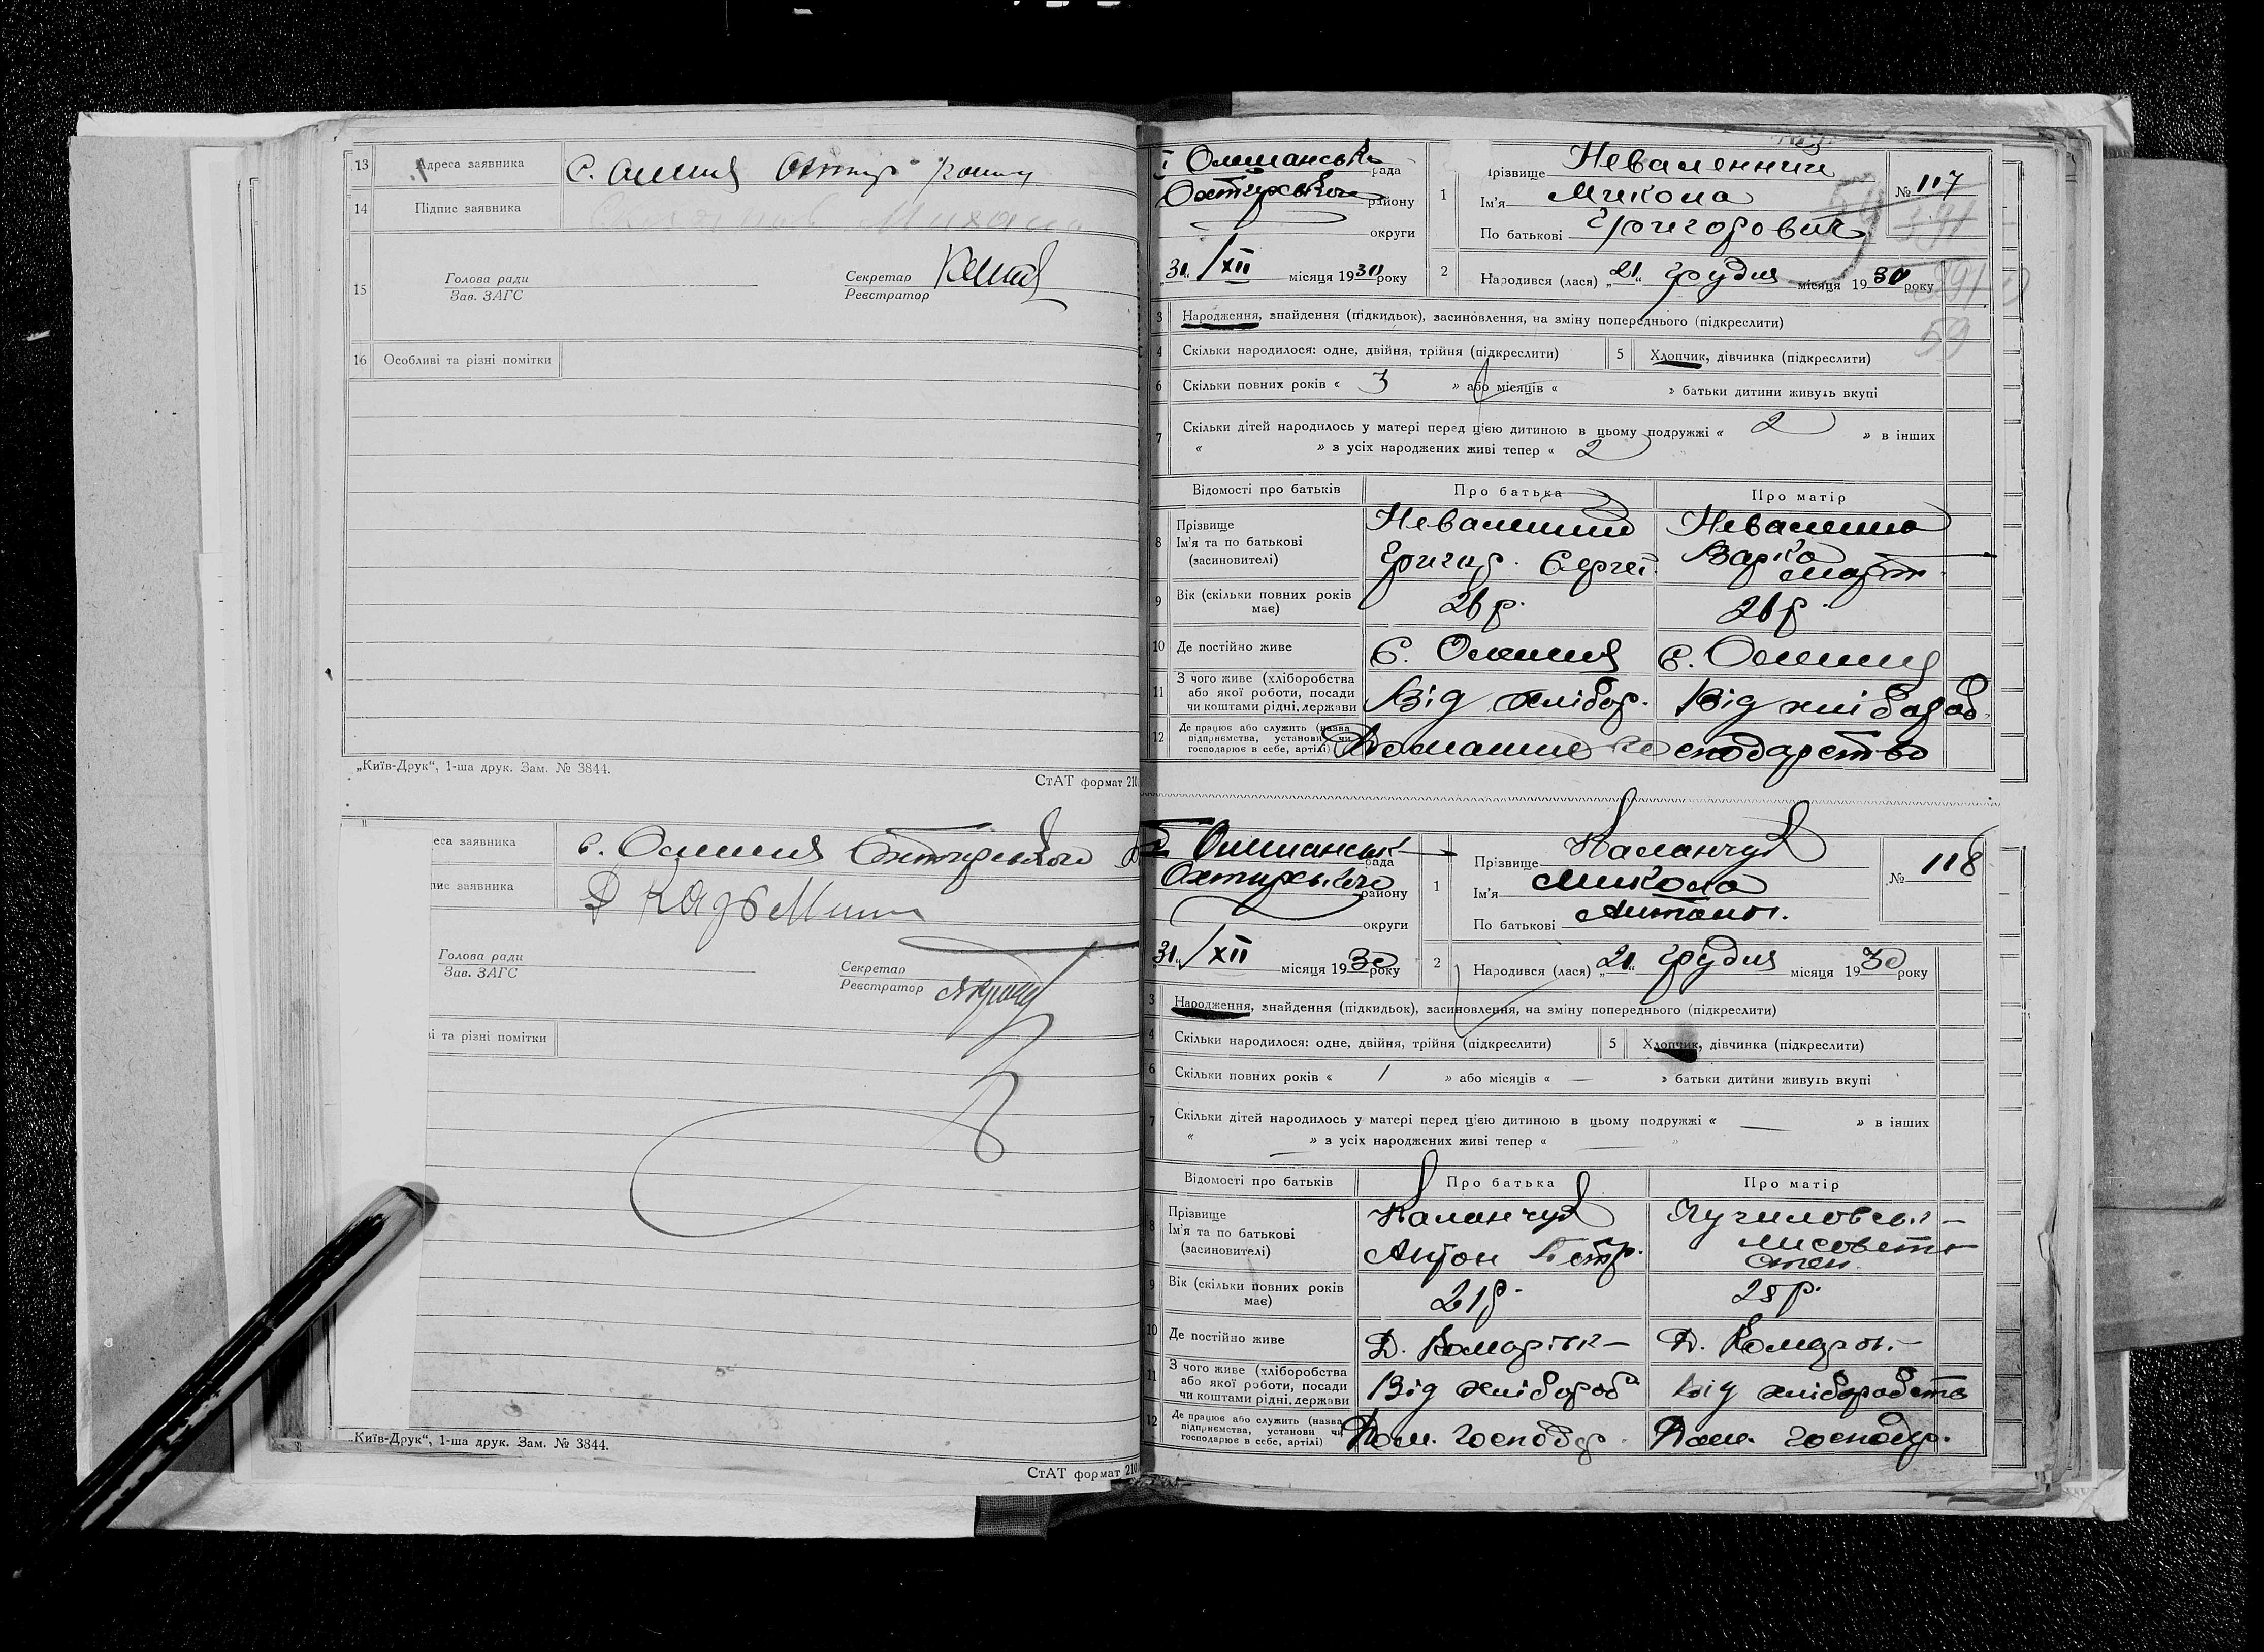 13 Адреса заявника с. Олешня Охтир. району
14 Підпис заявника
15 Голова ради
Зав. ЗАГС
Секретар
Реєстратор
16 Особливі та різні помітки
„Київ-Друк“, 1-ша друк. Зам. № 3844.
СтАТ формат 210
еса заявника с. Олешня Охтирського
пис заявника
Голова ради
Зав. ЗАГС
Секретар
Реєстратор
і та різні помітки
„Київ-Друк“, 1-ша друк. Зам. № 3844.
СтАТ формат 210
Олешанська рада
Охтирського району
округи
„31“/XII місяця 1930 року
1 Прізвище Неваленний
Ім'я Микола
По батькові Григорович
№ 117
59
2 Народився (лася) „21“ грудня місяця 1930 року
3 Народження, знайдення (підкидьок), засиновлення, на зміну попереднього (підкреслити)
59
4 Скільки народилося: одне, двійня, трійня (підкреслити) 5 Хлопчик, дівчинка (підкреслити)
6 Скільки повних років « 3 » або місяців « » батьки дитини живуть вкупі
7 Скільки дітей народилось у матері перед цією дитиною в цьому подружжі « 2 » в інших
« » з усіх народжених живі тепер « 2
Відомості про батьків Про батька Про матір
8 Прізвище
Ім'я та по батькові
(засиновителі)
Неваленний
Григор. Сергеї.
Неваленна
Варка
Март
9 Вік (скільки повних років має) 26 р. 26 р.
10 Де постійно живе С. Олешня С. Олешня
11 З чого живе (хліборобства
або якої роботи, посади
чи коштами рідні, держави
Від хлібор. Від хлібороб.
12 Де працює або служить (назва
підприємства, установи чи
господарює в себе, артілі)
Домашнє господарство
Олешанськ рада
Охтирського району
округи
„31“/XII місяця 1930 року
1 Прізвище Каланчук
Ім'я Микола
По батькові Антонов.
№ 118
2 Народився (лася) „21“ грудня місяця 1930 року
3 Народження, знайдення (підкидьок), засиновлення, на зміну попереднього (підкреслити)
4 Скільки народилося: одне, двійня, трійня (підкреслити) 5 Хлопчик, дівчинка (підкреслити)
6 Скільки повних років « 1 » або місяців « — » батьки дитини живуть вкупі
7 Скільки дітей народилось у матері перед цією дитиною в цьому подружжі « — » в інших
« — » з усіх народжених живі тепер « »
Відомості про батьків Про батька Про матір
8 Прізвище
Ім'я та по батькові
(засиновителі)
Каланчук
Антон Петр.
Лисовета
Степ.
9 Вік (скільки повних років має) 21 р. 28 р.
10 Де постійно живе Д. Комарівк— Д. Комаров.—
11 З чого живе (хліборобства
або якої роботи, посади
чи коштами рідні, держави
Від хлібороб Від хліборобств
12 Де працює або служить (назва
підприємства, установи чи
господарює в себе, артілі)
Дом. господар. Дом. господар.